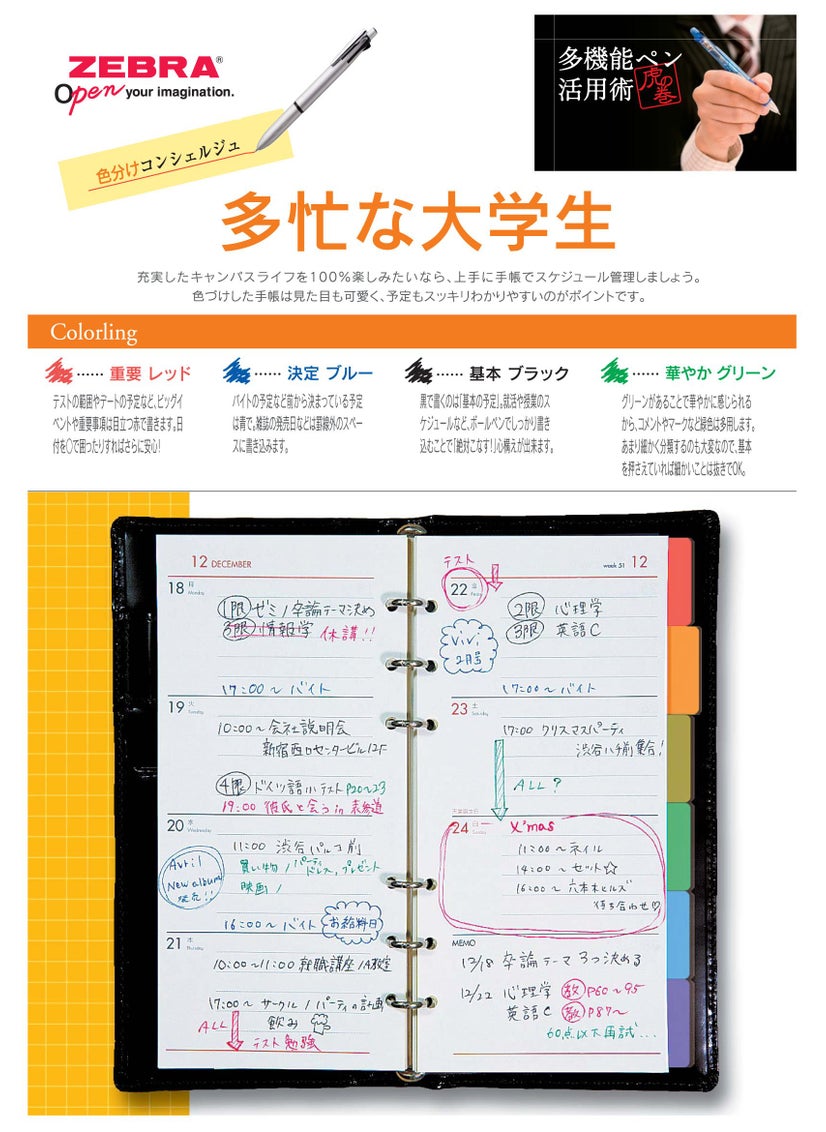 ZEBRA®
Open your imagination.
多機能ペン
活用術
虎の巻
色分けコンシェルジュ
多忙な大学生
充実したキャンパスライフを100％楽しみたいなら、上手に手帳でスケジュール管理しましょう。
色づけした手帳は見た目も可愛く、予定もスッキリわかりやすいのがポイントです。
Colorling
……重要 レッド
テストの範囲やデートの予定など、ビッグイ
ベントや重要事項は目立つ赤で書きます。日
付を○で囲ったりすればさらに安心！
……決定 ブルー
バイトの予定など前から決まっている予定
は青で。雑誌の発売日などは罫線外のスペー
スに書き込みます。
……基本 ブラック
黒で書くのは「基本の予定」。就活や授業のス
ケジュールなど、ボールペンでしっかり書き
込むことで「絶対こなす！」心構えが出来ます。
……華やか グリーン
グリーンがあることで華やかに感じられる
から、コメントやマークなど緑色は多用します。
あまり細かく分類するのも大変なので、基本
を押さえていれば細かいことは抜きでOK。
12 DECEMBER
18 月
Monday
1限 ゼミ / 卒論テーマ決め
3限 情報学 休講!!
17:00〜 バイト
19 火
Tuesday
10:00〜 会社説明会
新宿西口センタービル12F
4限 ドイツ語小テスト P20〜23
19:00 彼氏と会う in 表参道
20 水
Wednesday
11:00 渋谷パルコ前
買い物 / パーティドレス, プレゼント
映画 /
Avril
New album
発売!!
16:00〜 バイト
お給料日
21 木
Thursday
10:00〜11:00 就職講座 1A教室
17:00〜 サークル / パーティの計画
飲み
ALL
テスト勉強
week 51 12
テスト
22 金
Friday
2限 心理学
3限 英語C
ViVi
2月号
17:00〜 バイト
23 土
Saturday
17:00 クリスマスパーティ
渋谷ハチ前集合!
ALL ?
天皇誕生日
24 日
Sunday
X'mas
11:00〜 ネイル
14:00〜 セット☆
16:00〜 六本木ヒルズ
待ち合わせ♡
MEMO
12/18 卒論テーマ 3つ決める
12/22 心理学 教 P60〜95
英語C 教 P87〜
60点以下再試...